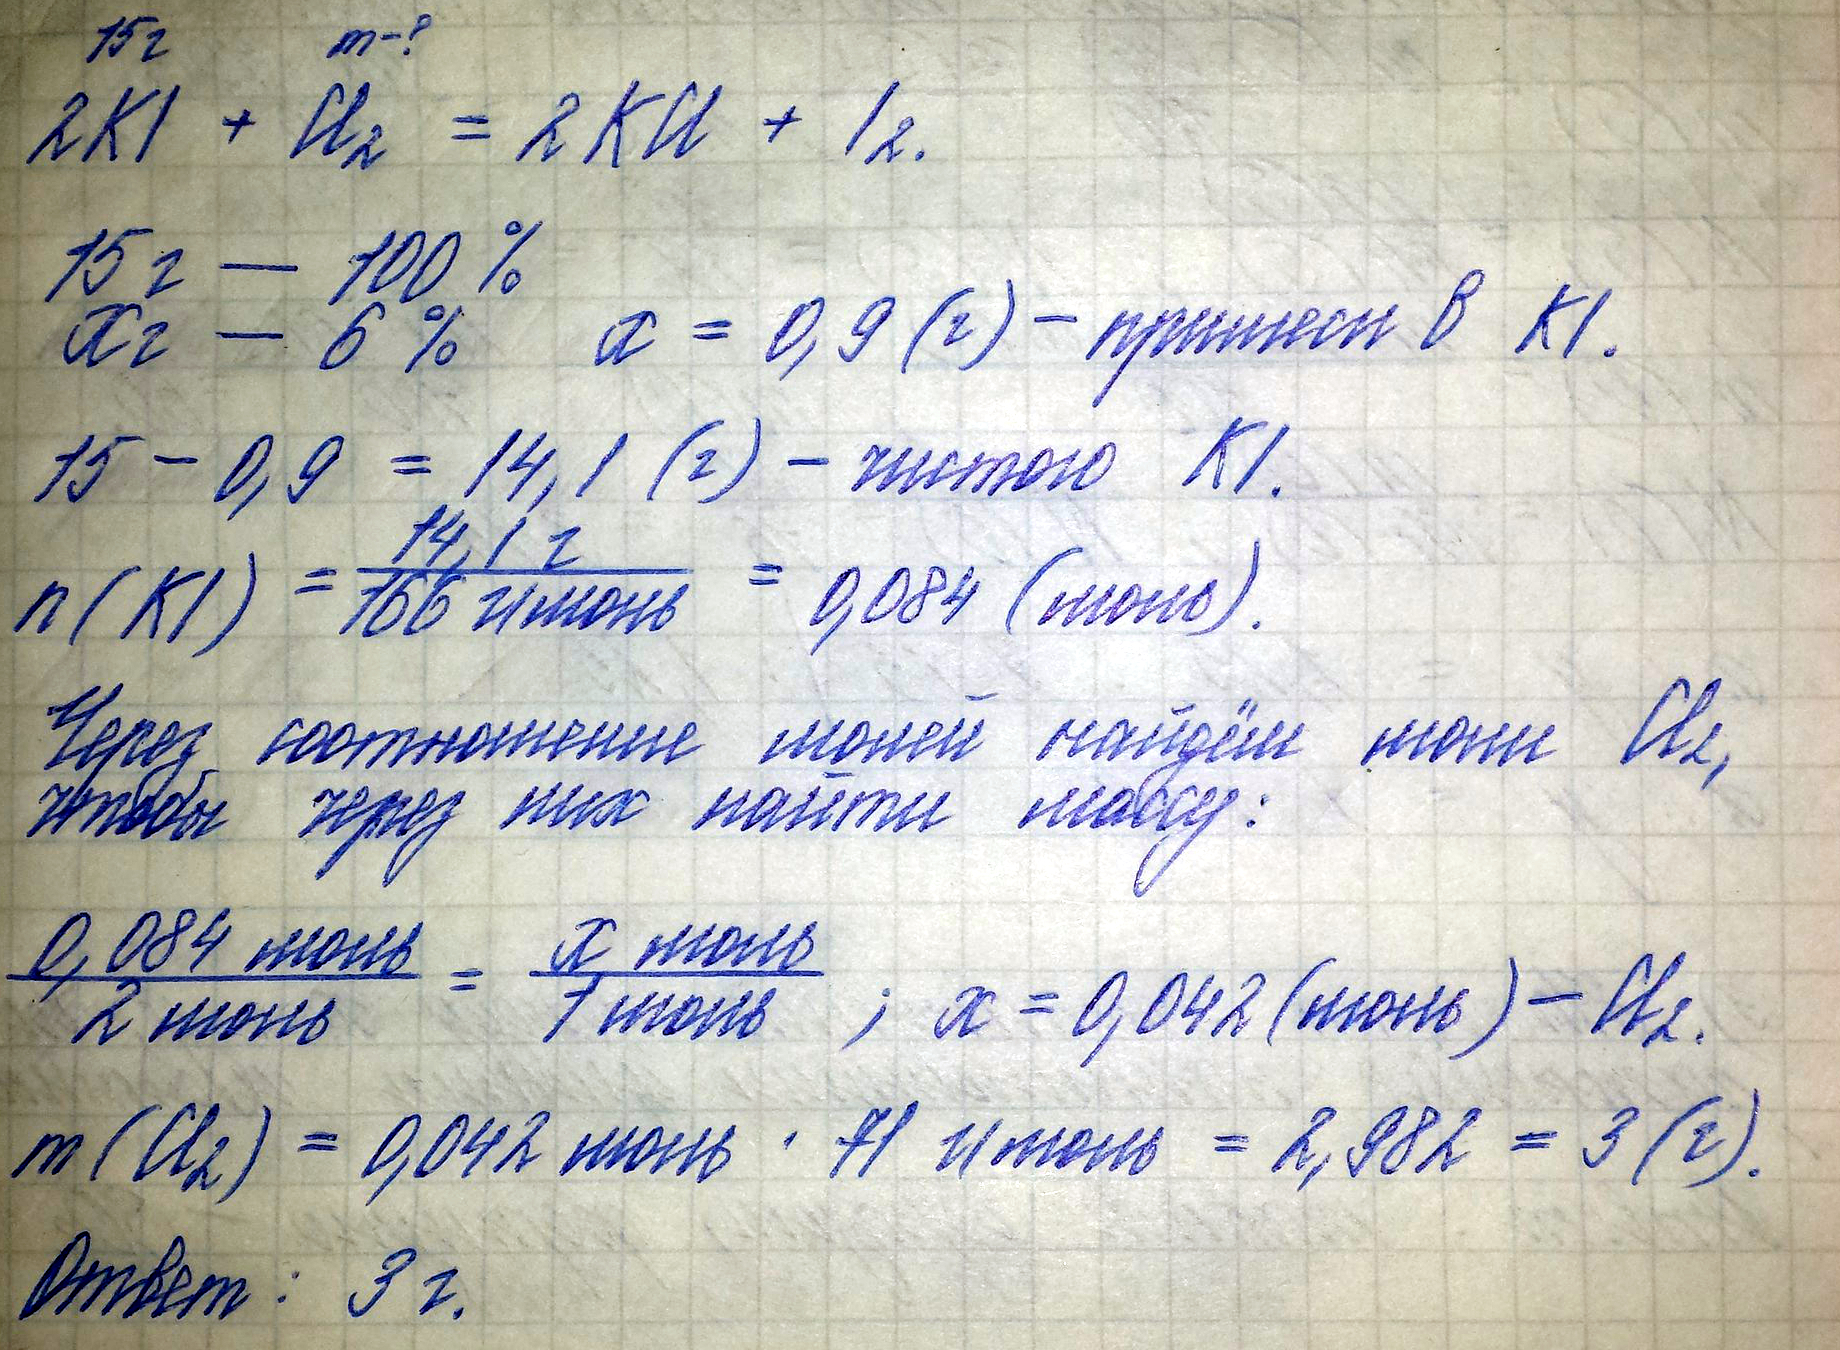 15г m-?
2KI + Cl₂ = 2KCl + I₂.
15 г — 100 %
х г — 6 % x = 0,9 (г) – примеси в KI.
15 – 0,9 = 14,1 (г) – чистого KI.
n(KI) = 14,1 г / 166 г/моль = 0,084 (моль).
Через соотношение молей найдём моли Cl₂,
чтобы через них найти массу:
0,084 моль / 2 моль = x моль / 1 моль ; x = 0,042 (моль) – Cl₂.
m(Cl₂) = 0,042 моль · 71 г/моль = 2,982 = 3 (г).
Ответ: 3 г.